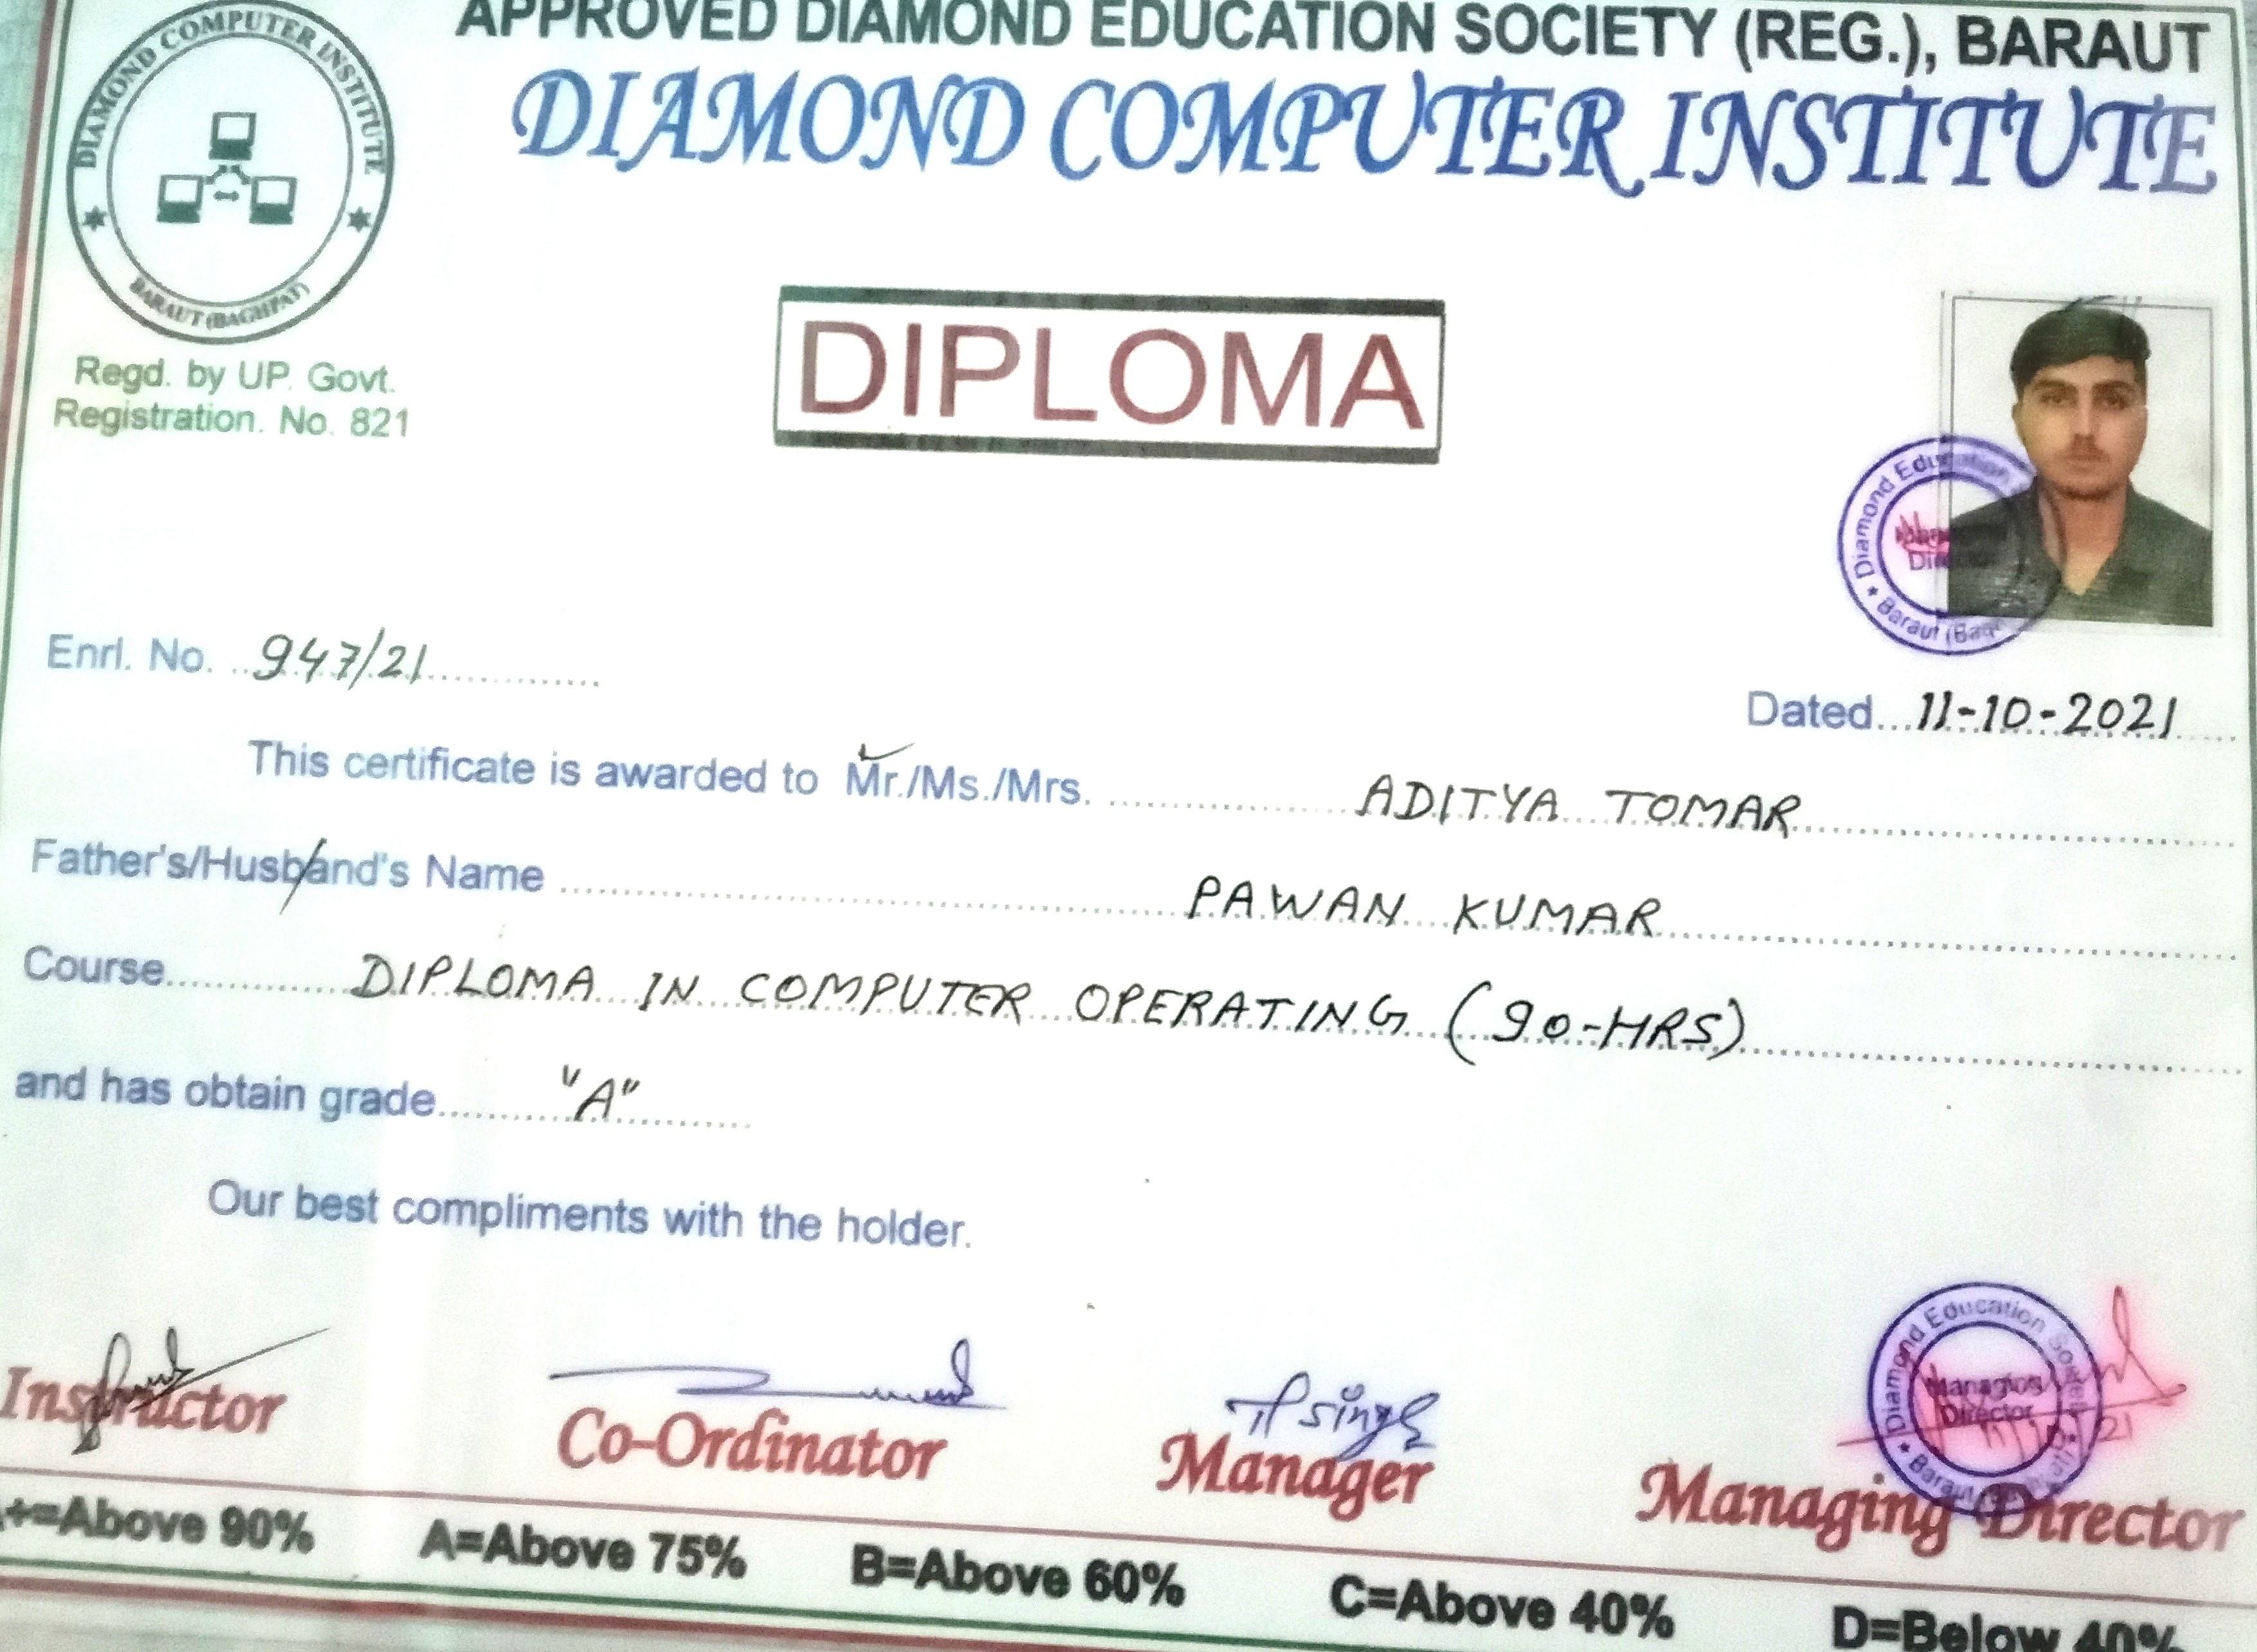 APPROVED DIAMOND EDUCATION SOCIETY (REG.), BARAUT
DIAMOND COMPUTER INSTITUTE
DIAMOND COMPUTER INSTITUTE
BARAUT (BAGHPAT)
Regd. by UP. Govt.
Registration. No. 821
DIPLOMA
Diamond Education
Director
Baraut
Enrl. No. 947/21
Dated 11-10-2021
This certificate is awarded to Mr./Ms./Mrs. ADITYA TOMAR
Father's/Husband's Name PAWAN KUMAR
Course DIPLOMA IN COMPUTER OPERATING (90-HRS)
and has obtain grade "A"
Our best compliments with the holder.
Diamond Education Society
Managing
Director
Baraut
Singh
Instructor
Co-Ordinator
Manager
Managing Director
A+=Above 90% A=Above 75% B=Above 60% C=Above 40% D=Below 40%